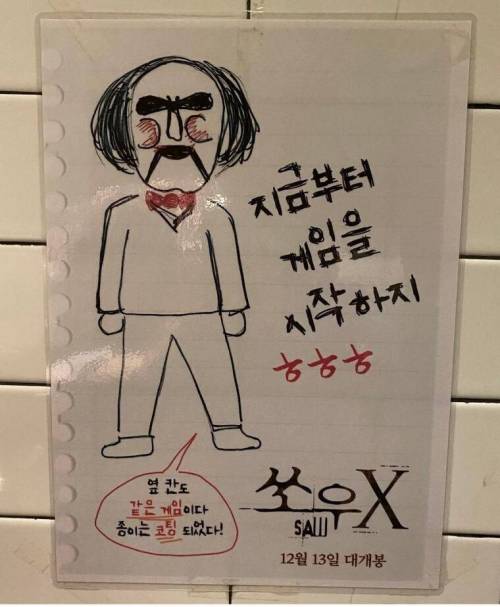 지금부터
게임을
시작하지
흐흐흐
옆 칸도
같은 게임이다
종이는 코팅 되었다!
쏘우X
SAW
12월 13일 대개봉